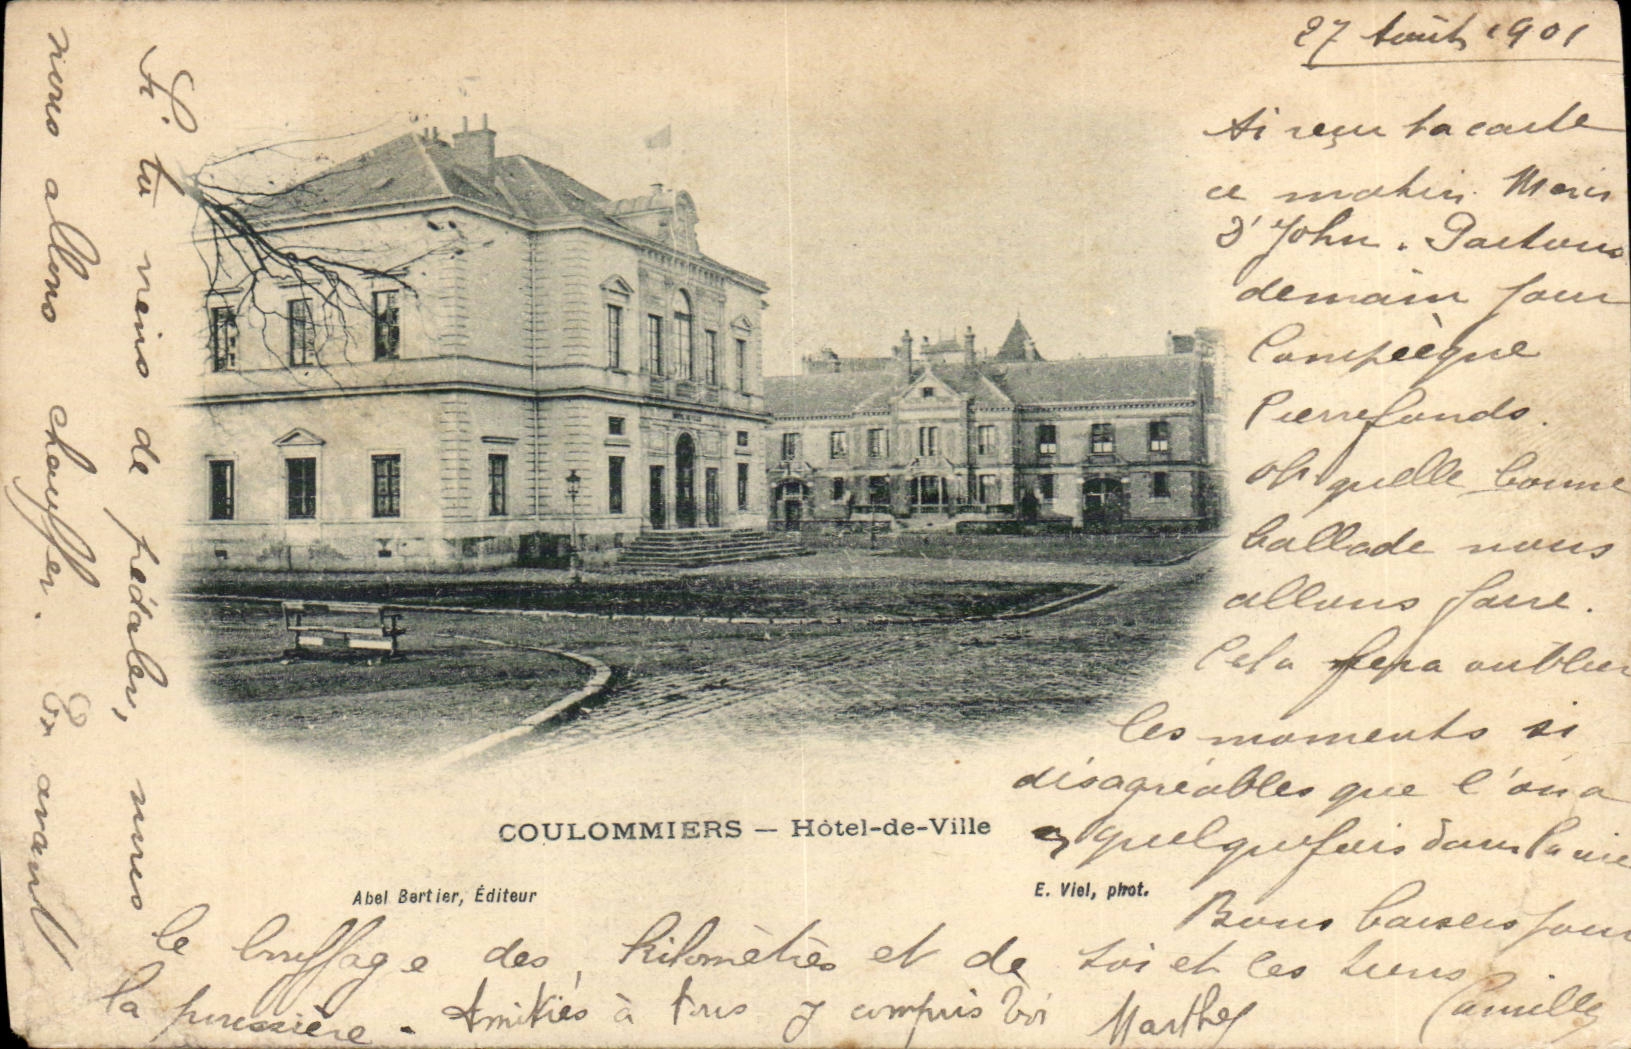 27 Août 1901
Ai reçu ta carte
ce matin. Merci
d'John. Partons
demain pour
Compiègne
Pierrefonds.
Oh quelle bonne
ballade nous
allons faire.
Cela fera oublier
les moments si
désagréables que l'on a
quelquefois dans la vie
Bons baisers pour
toi et les tiens
Camille
Si tu viens de pédaler, nous
nous allons chauffer. En avant
le bouffage des kilomètres et de
la poussière. Amitiés à tous y compris toi Marthe
COULOMMIERS — Hôtel-de-Ville
Abel Bertier, Éditeur
E. Viel, phot.